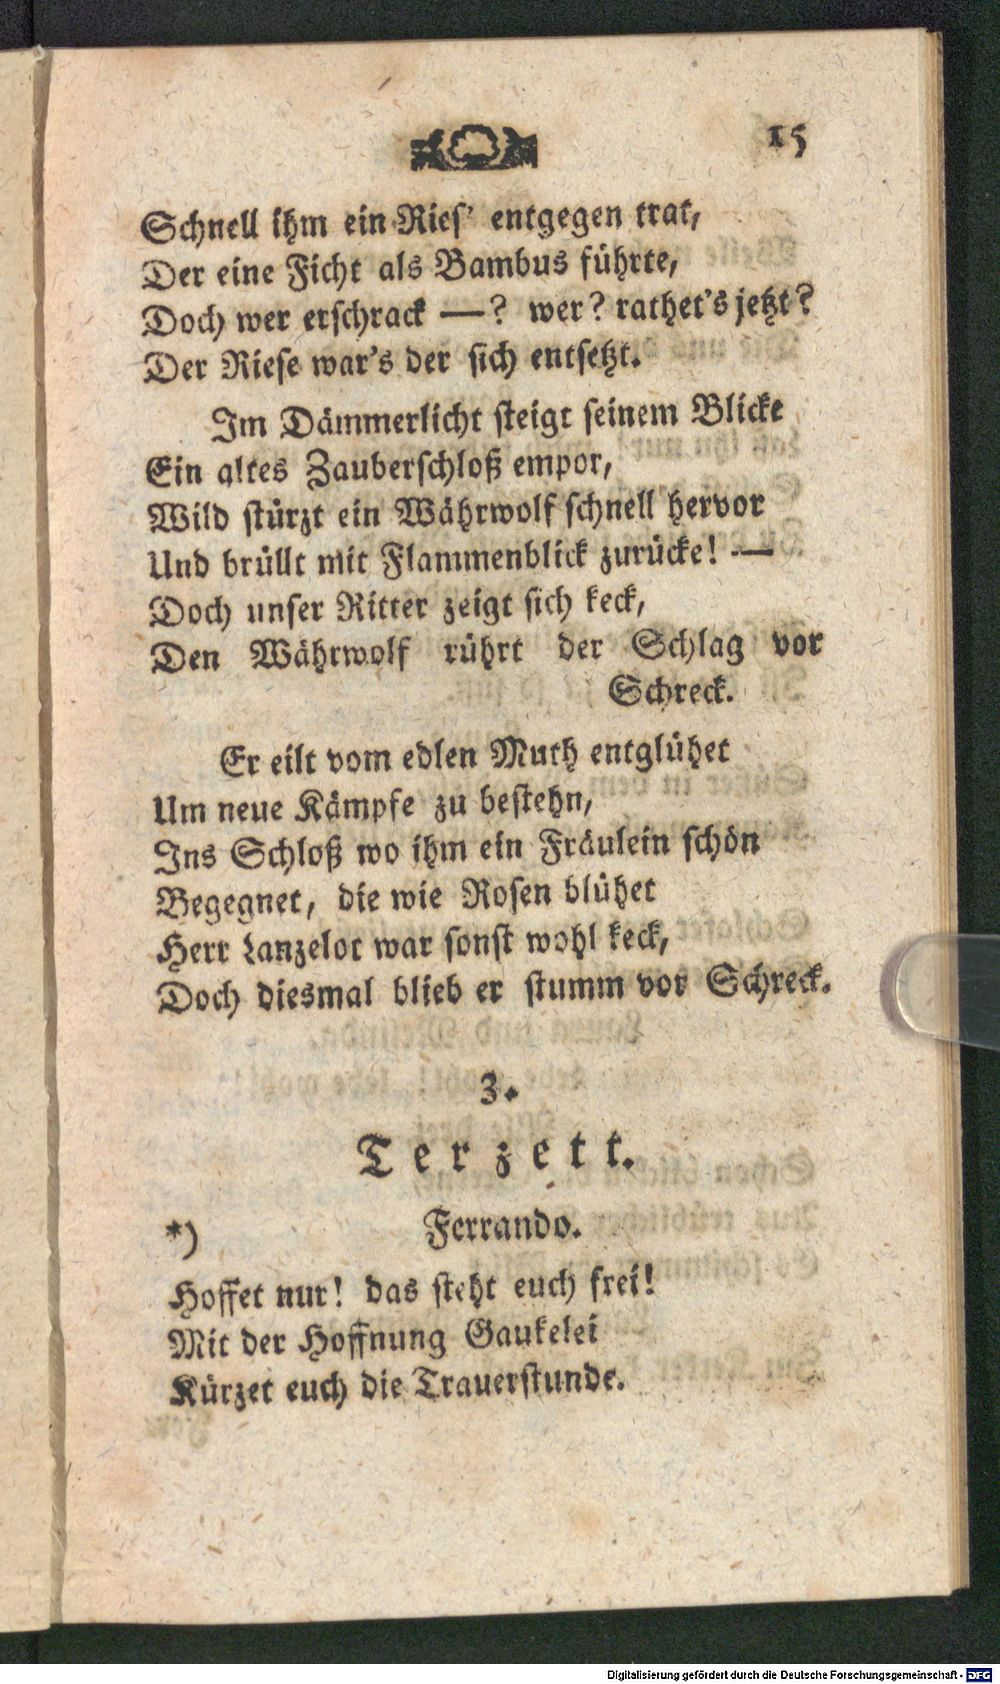 15
Schnell ihm ein Ries' entgegen trat,
Der eine Ficht als Bambus führte,
Doch wer erschrack —? wer? rathet's jetzt?
Der Riese war's der sich entsetzt.
Im Dämmerlicht steigt seinem Blicke
Ein altes Zauberschloß empor,
Wild stürzt ein Währwolf schnell hervor
Und brüllt mit Flammenblick zurücke! —
Doch unser Ritter zeigt sich keck,
Den Währwolf rührt der Schlag vor
Schreck.
Er eilt vom edlen Muth entglühet
Um neue Kämpfe zu bestehn,
Ins Schloß wo ihm ein Fräulein schön
Begegnet, die wie Rosen blühet
Herr Lanzelot war sonst wohl keck,
Doch diesmal blieb er stumm vor Schreck.
3.
Terzett.
*) Ferrando.
Hoffet nur! das steht euch frei!
Mit der Hoffnung Gaukelei
Kürzet euch die Trauerstunde.
Digitalisierung gefördert durch die Deutsche Forschungsgemeinschaft - DFG